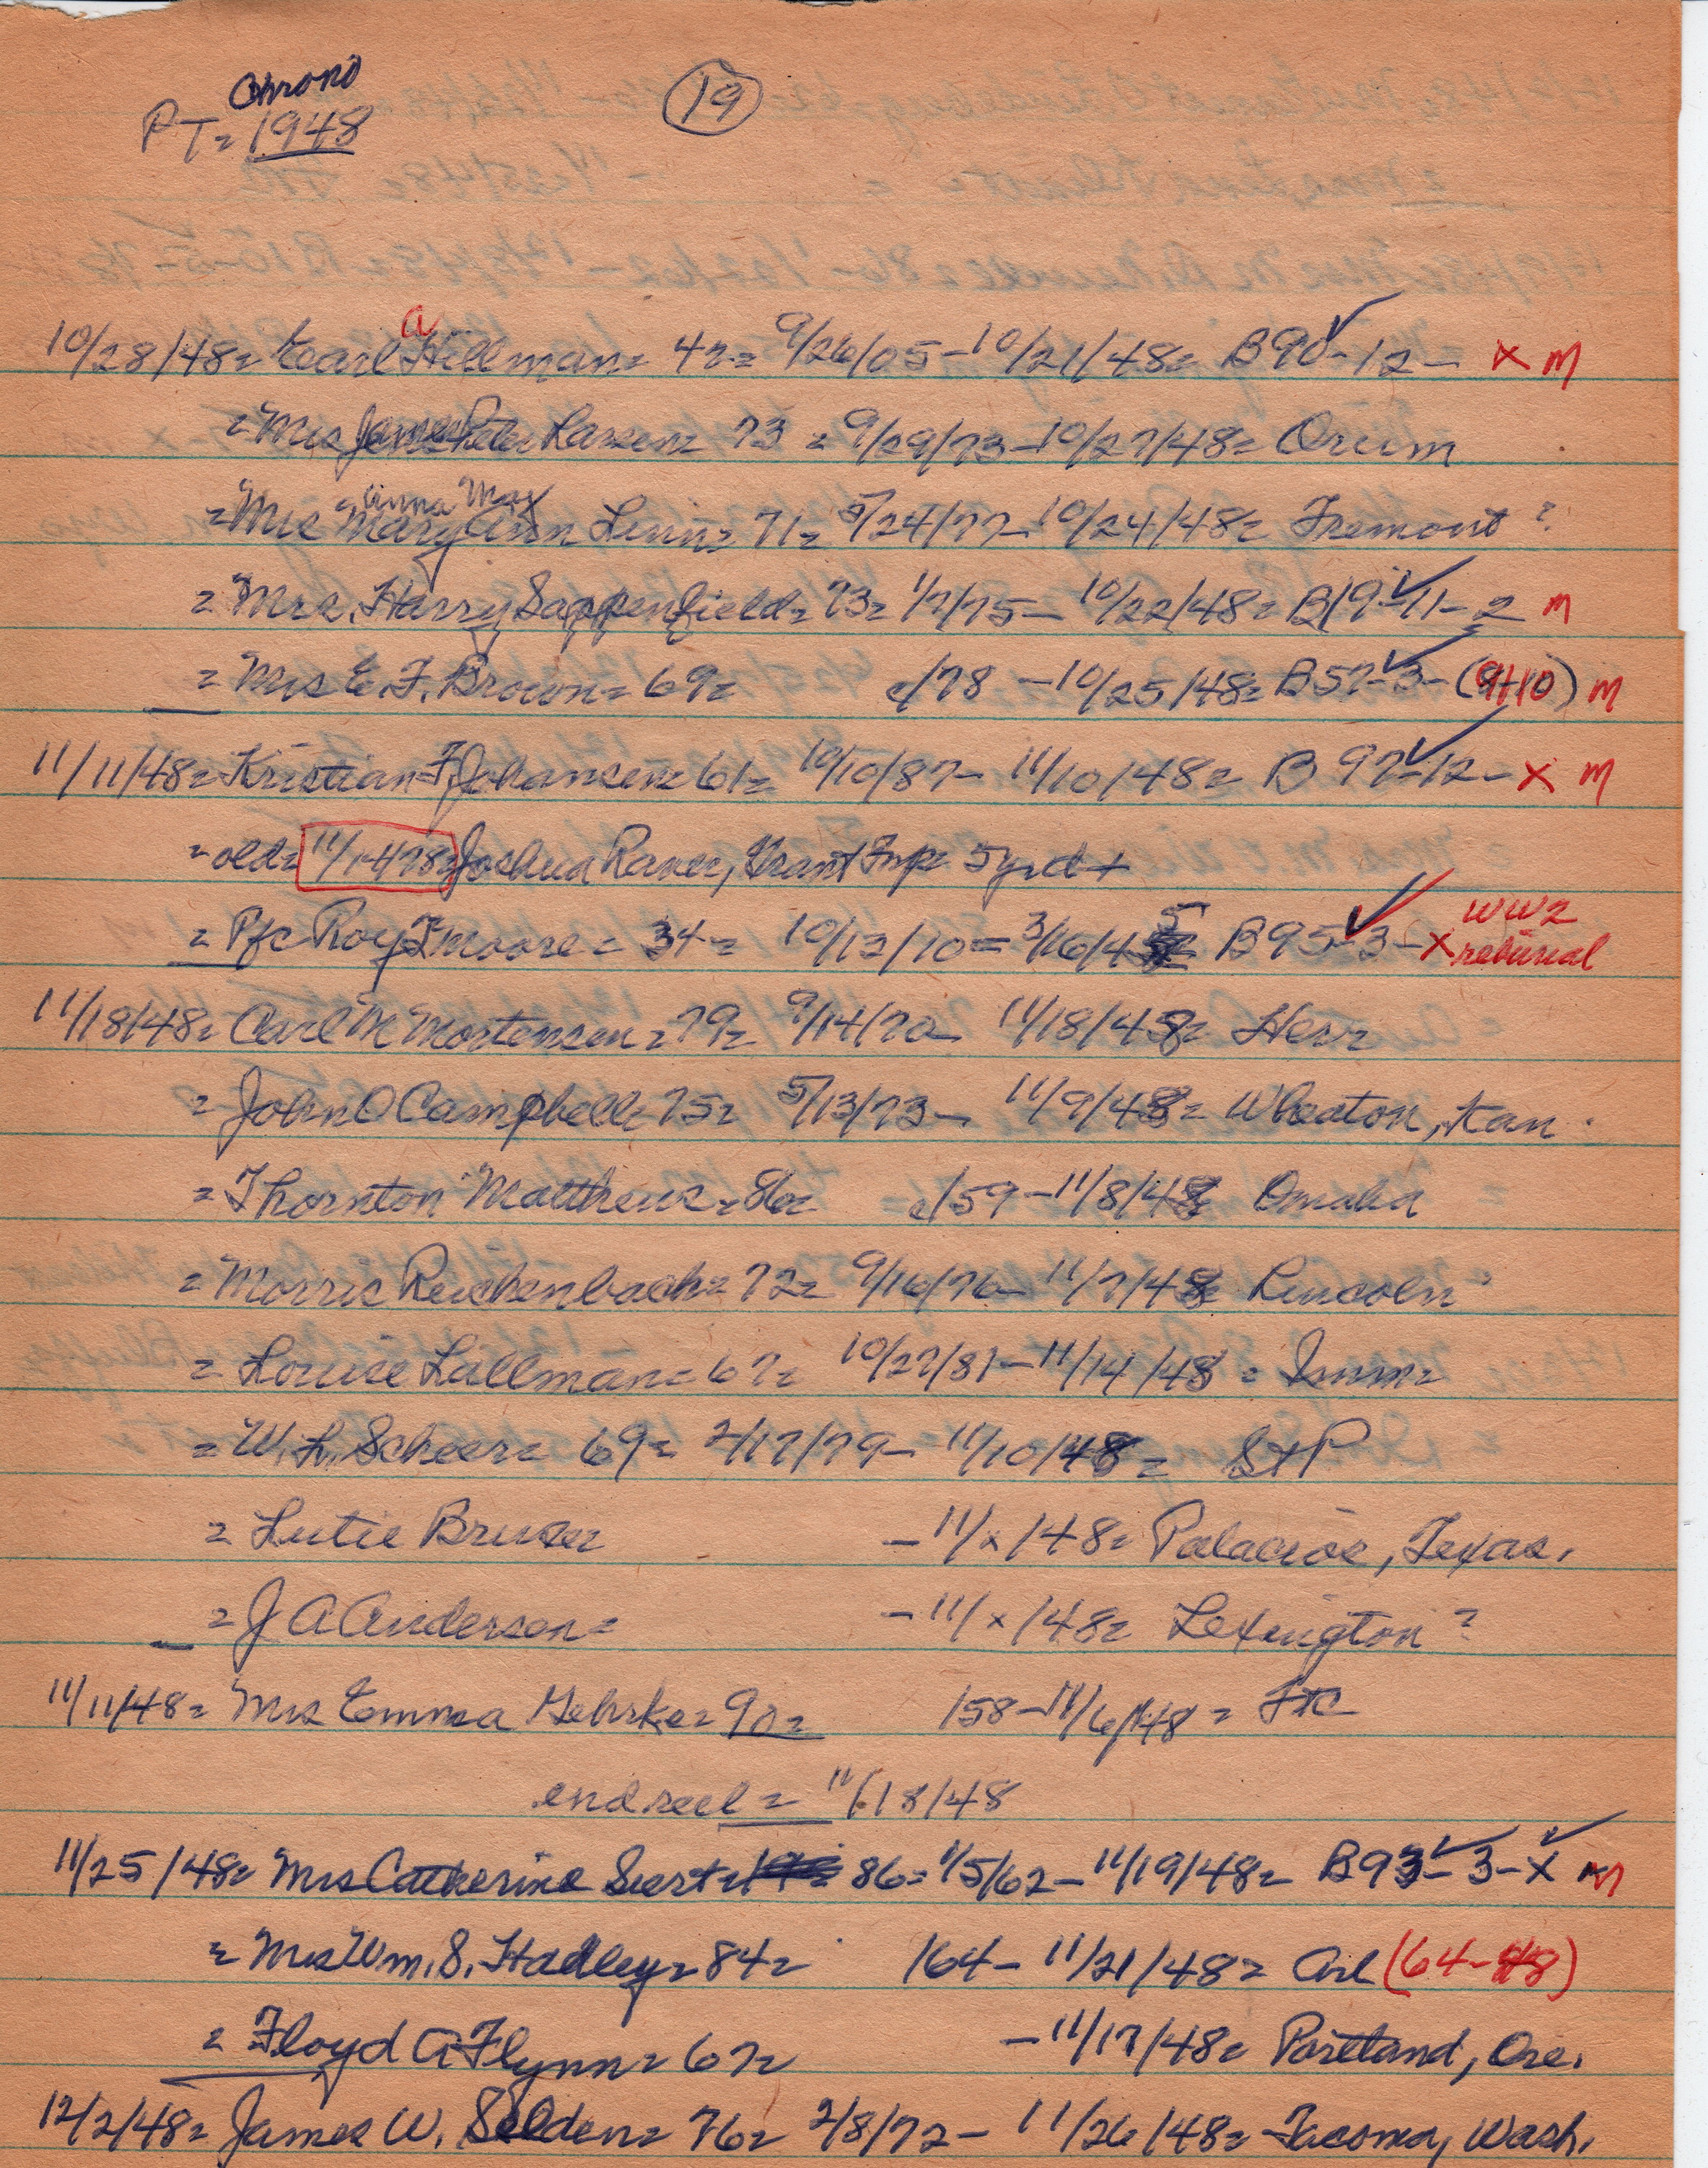 Chrono
PT = 1948
19
10/28/48 = Earl a Hillman = 42 = 9/26/05 - 10/21/48 = B90-12- x m
= Mrs Peter Larsen = 73 = 9/29/73 - 10/27/48 = Orum
= Anna May
= Mrs Mary Ann Linn = 71 = 5/24/77 - 10/24/48 = Fremont ?
= Mrs. Harry Sappenfield = 73 = 1/7/75 - 10/22/48 = B19-11-2 m
= Mrs E. F. Brown = 69 = c/78 - 10/25/48 = B57-3-(9+10) m
11/11/48 = Kristian F Johansen = 61 = 10/10/87 - 11/10/48 = B 97-12- x m
= old = 11/14/78 = Joshua Raver, Grant Imp = 5yrd +
= Pfc Roy I Moore = 34 = 10/13/10 = 3/16/45 B95-3-x WW2 reburial
11/18/48 = Carl M Mortensen = 79 = 9/14/70 - 11/18/48 = Herr
= John O Campbell = 75 = 5/13/73 - 11/9/48 = Wheaton, Kan.
= Thornton Matthews = 86 = c/59 - 11/8/48 Omaha
= Morris Reichenbach = 72 = 9/16/76 - 11/7/48 Lincoln ?
= Louise Lallman = 67 = 10/27/81 - 11/14/48 = Imm =
= W. L. Scheer = 69 = 2/17/79 - 11/10/48 = StP
= Lutie Bruser - 11/x/48 = Palacios, Texas.
= J A Anderson = - 11/x/48 = Lexington ?
11/11/48 = Mrs Emma Gehrke = 90 = 158 - 11/6/48 = FtC
end reel = 11/18/48
11/25/48 = Mrs Catherine Siert = 86 = 1/5/62 - 11/19/48 = B93-3-x m
= Mrs Wm. S. Hadley = 84 = 164 - 11/21/48 = Arl (64-48)
= Floyd A Flynn = 67 = - 11/17/48 = Portland, Ore.
12/2/48 = James W. Selden = 76 = 2/8/72 - 11/26/48 = Tacoma, Wash.